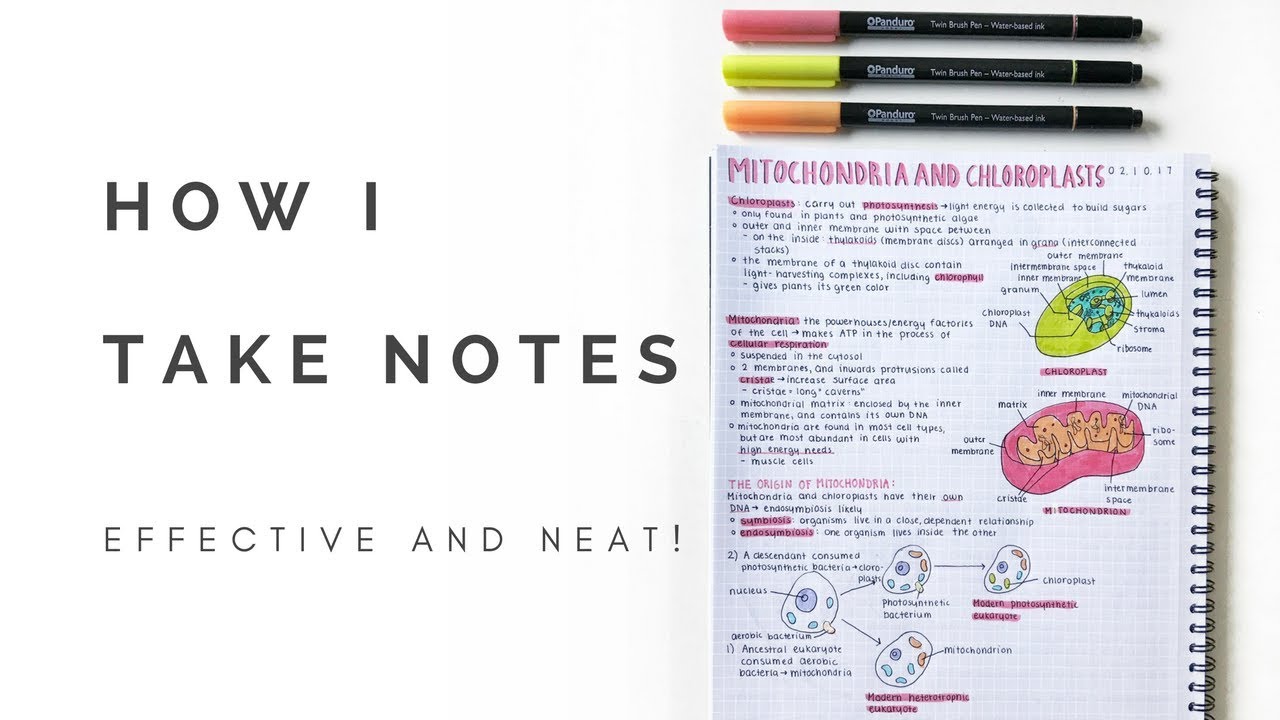 HOW I
TAKE NOTES
EFFECTIVE AND NEAT!
Panduro
Twin Brush Pen – Water-based ink
Panduro
Twin Brush Pen – Water-based ink
Panduro
Twin Brush Pen – Water-based ink
MITOCHONDRIA AND CHLOROPLASTS 02.10.17
Chloroplasts: carry out photosynthesis → light energy is collected to build sugars
° only found in plants and photosynthetic algae
° outer and inner membrane with space between
- on the inside: thylakoids (membrane discs) arranged in grana (interconnected
stacks)
° the membrane of a thylakoid disc contain
light-harvesting complexes, including chlorophyll
- gives plants its green color
outer membrane
intermembrane space
inner membrane
granum
chloroplast
DNA
thykaloid
membrane
lumen
thykaloids
stroma
ribosome
CHLOROPLAST
Mitochondria: the powerhouses/energy factories
of the cell → makes ATP in the process of
cellular respiration
° suspended in the cytosol
° 2 membranes, and inwards protrusions called
cristae → increase surface area
- cristae = long "caverns"
° mitochondrial matrix: enclosed by the inner
membrane, and contains its own DNA
° mitochondria are found in most cell types,
but are most abundant in cells with
high energy needs
- muscle cells
inner membrane
mitochondrial
DNA
matrix
ribo-
some
outer
membrane
cristae
intermembrane
space
MITOCHONDRION
THE ORIGIN OF MITOCHONDRIA:
Mitochondria and chloroplasts have their own
DNA → endosymbiosis likely
° symbiosis: organisms live in a close, dependent relationship
° endosymbiosis: one organism lives inside the other
2) A descendant consumed
photosynthetic bacteria → chloro-
plasts
nucleus
photosynthetic
bacterium
chloroplast
Modern photosynthetic
eukaryote
aerobic bacterium
1) Ancestral eukaryote
consumed aerobic
bacteria → mitochondria
mitochondrion
Modern heterotrophic
eukaryote